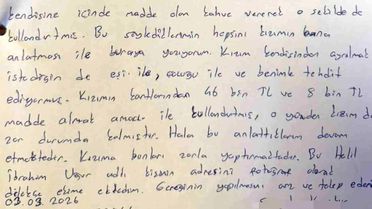 kendisine içinde madde olan kahve vererek o şekilde
kullandırtmış. Bu söylediklerimin hepsini kızımın bana
anlatması ile buraya yazıyorum. Kızım kendisinden ayrılmak
istediğin de eşi ile, çocuğu ile ve benimle tehdit
ediyormuş. Kızımın kartlarından 46 bin TL ve 8 bin TL
madde almak amacı ile kullandırtmış, o yüzden kızım da
zor durumda kalmıştır. Hala bu anlattıklarım devam
etmektedir. Kızıma bunları zorla yaptırmaktadır. Bu Halil
İbrahim Uğur adlı kişinin adresini fotoğraf olarak
dilekçe ekime ekledim. Gereğinin yapılmasını arz ve talep ederim
03.03.2026